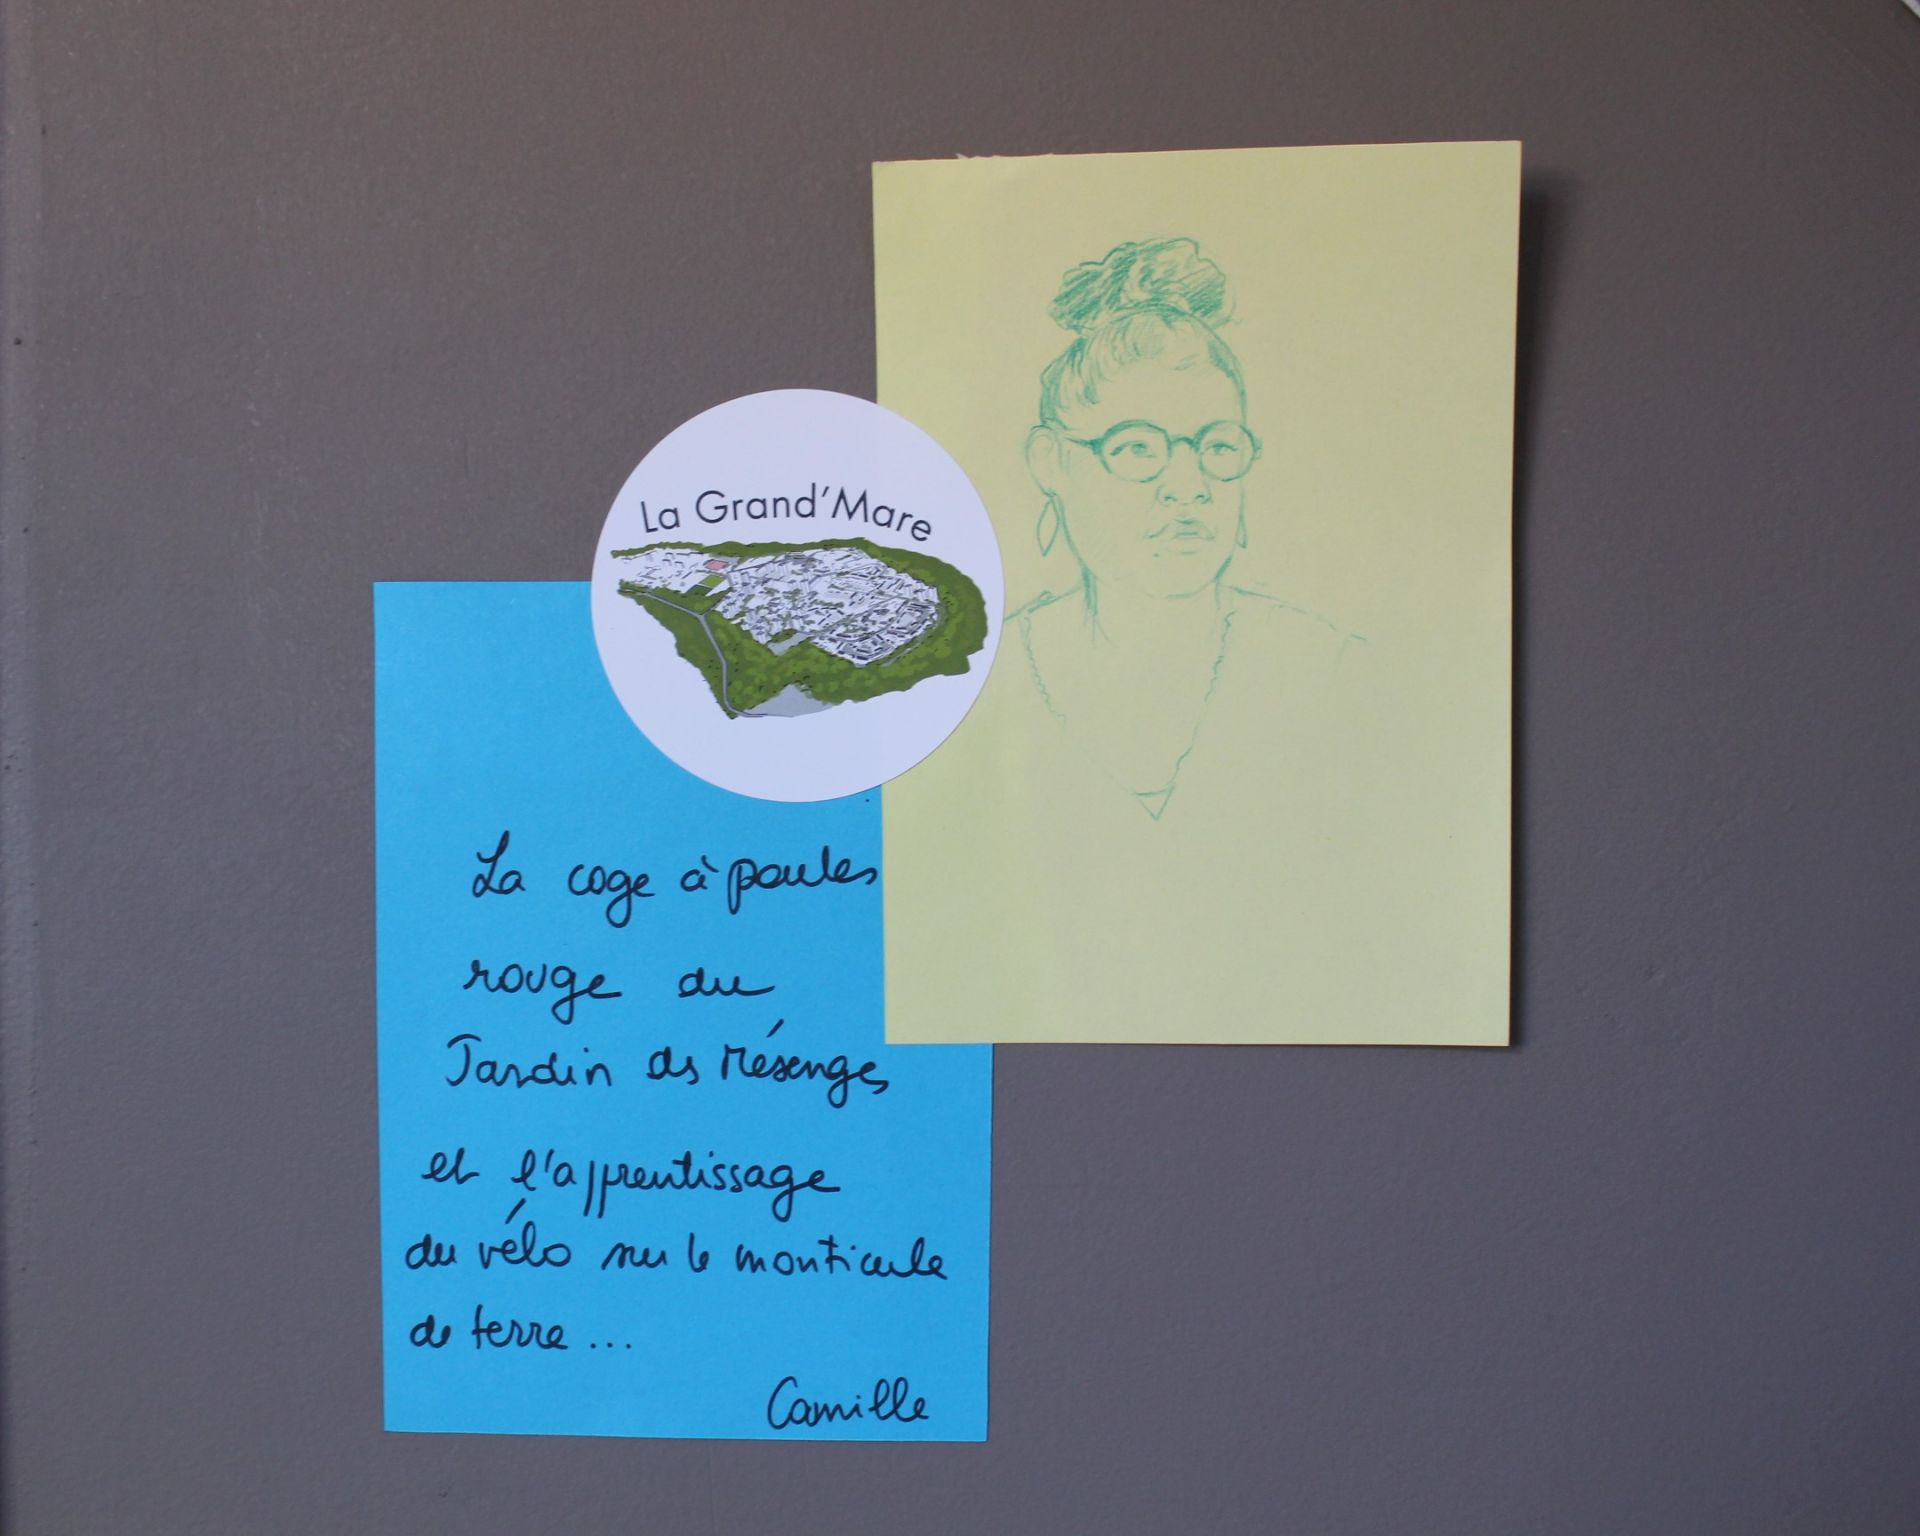 La Grand'Mare
La cage à poules
rouge du
Jardin des Mésanges
et l'apprentissage
du vélo sur le monticule
de terre...
Camille